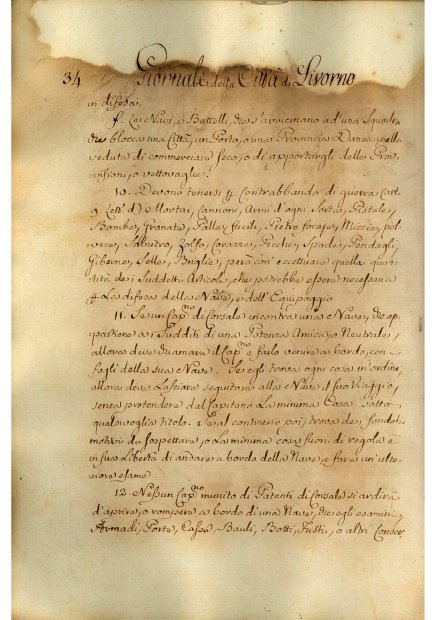 34 Giornali della Città di Livorno
in difesa.
f. Le Navi, e Battelli, che s'avvicinano ad una Squadra
che blocca una Città, un Porto, o una Provincia Danese, nella
veduta di commerciare seco, o di apportargli delle Prov-
visioni, o vettovaglie.
10. Devono tenersi p Contrabbando di guerra (art.
9. d.) e Mortai, Cannoni, Armi d'ogni sorta, Pistole,
Bombe, Granate, Palle, fucili, Pietre focaje, Miccia, pol-
vere, Salnitro, Zolfo, Corazze, Picche, Spade, Pendagli,
Giberne, Selle, Briglie, però con eccettuare quella quan-
tità de i suddetti Articoli, che potrebbe essere necessaria
p La difesa della Nave, e dell'Equipaggio
11. Se un Capno di Corsale incontra una Nave, che ap-
partiene a i sudditi di una Potenza Amica, o Neutrale,
allora deve chiamare il Capno e farlo venire a bordo, con i
fogli della sua Nave. Se egli trova ogni cosa in ordine,
allora deve Lasciare seguitare alla Nave il suo Viaggio,
senza pretendere dal Capitano La minima Cosa sotto
qualsivoglia titolo. Se al contrario poi, trova dei fondati
motivi da sospettare, o La minima cosa fuori di regola è
in sua Libertà di andare a bordo della Nave e fare un'ulte-
riore esame
12. Nessun Capno munito di Patenti di Corsale si ardirà
d'aprire, o rompere a bordo di una Nave, che egli esamini
Armadi, Porte, Casse, Bauli, Botti, Fusti, o altri Conser